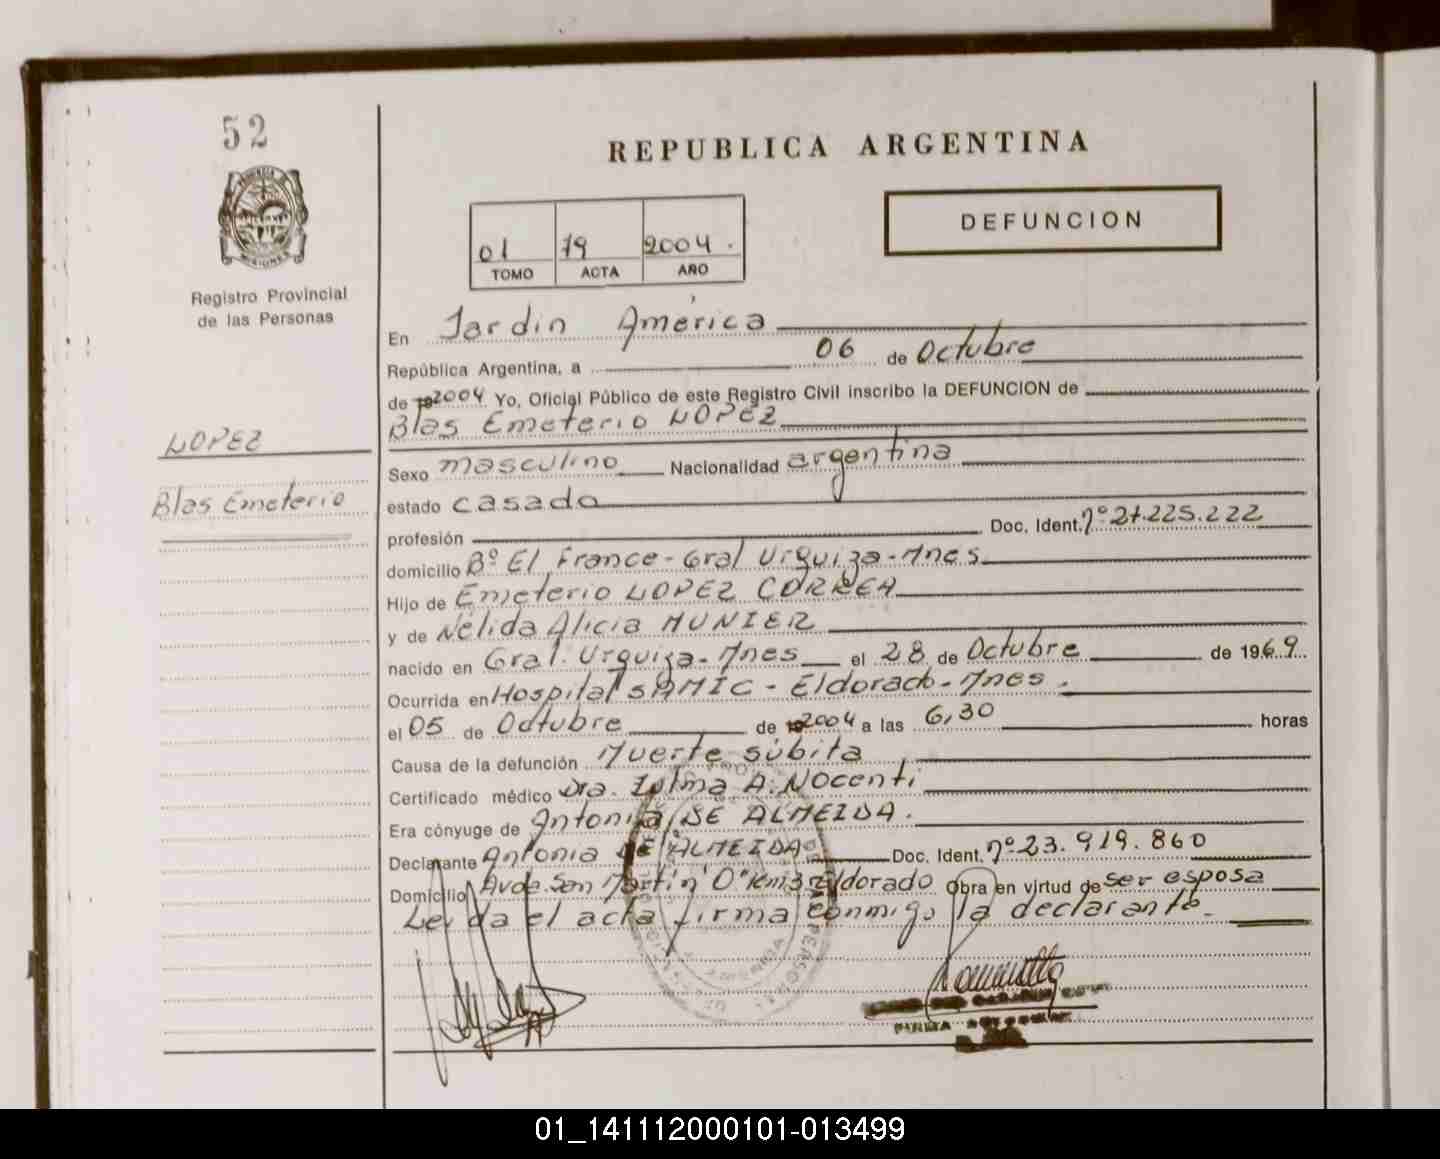 52
REPUBLICA ARGENTINA
DEFUNCION
01 79 2004.
TOMO ACTA AÑO
PROVINCIA
MISIONES
Registro Provincial
de las Personas
En Jardin América
República Argentina, a 06 de Octubre
de 2004 Yo, Oficial Público de este Registro Civil inscribo la DEFUNCION de
Blas Emeterio LOPEZ
LOPEZ
Sexo masculino Nacionalidad argentina
Blas Emeterio
estado casado
profesión Doc. Ident. nº 21.225.222
domicilio Bº El France - Gral Urquiza - Mnes
Hijo de Emeterio LOPEZ CORREA
y de Nélida Alicia MUNIER
nacido en Gral. Urquiza - Mnes el 28 de Octubre de 1969
Ocurrida en Hospital SAMIC - Eldorado - Mnes.
el 05 de Octubre de 2004 a las 6,30 horas
Causa de la defunción Muerte súbita
Certificado médico Dra. Zulma A. Nocenti
Era cónyuge de Antonia DE ALMEIDA.
Declarante Antonia DE ALMEIDA Doc. Ident. nº 23.919.860
Domicilio Avda. San Martín Km 3 Eldorado Obra en virtud de ser esposa
Leida el acta firma conmigo la declarante.
01_141112000101-013499